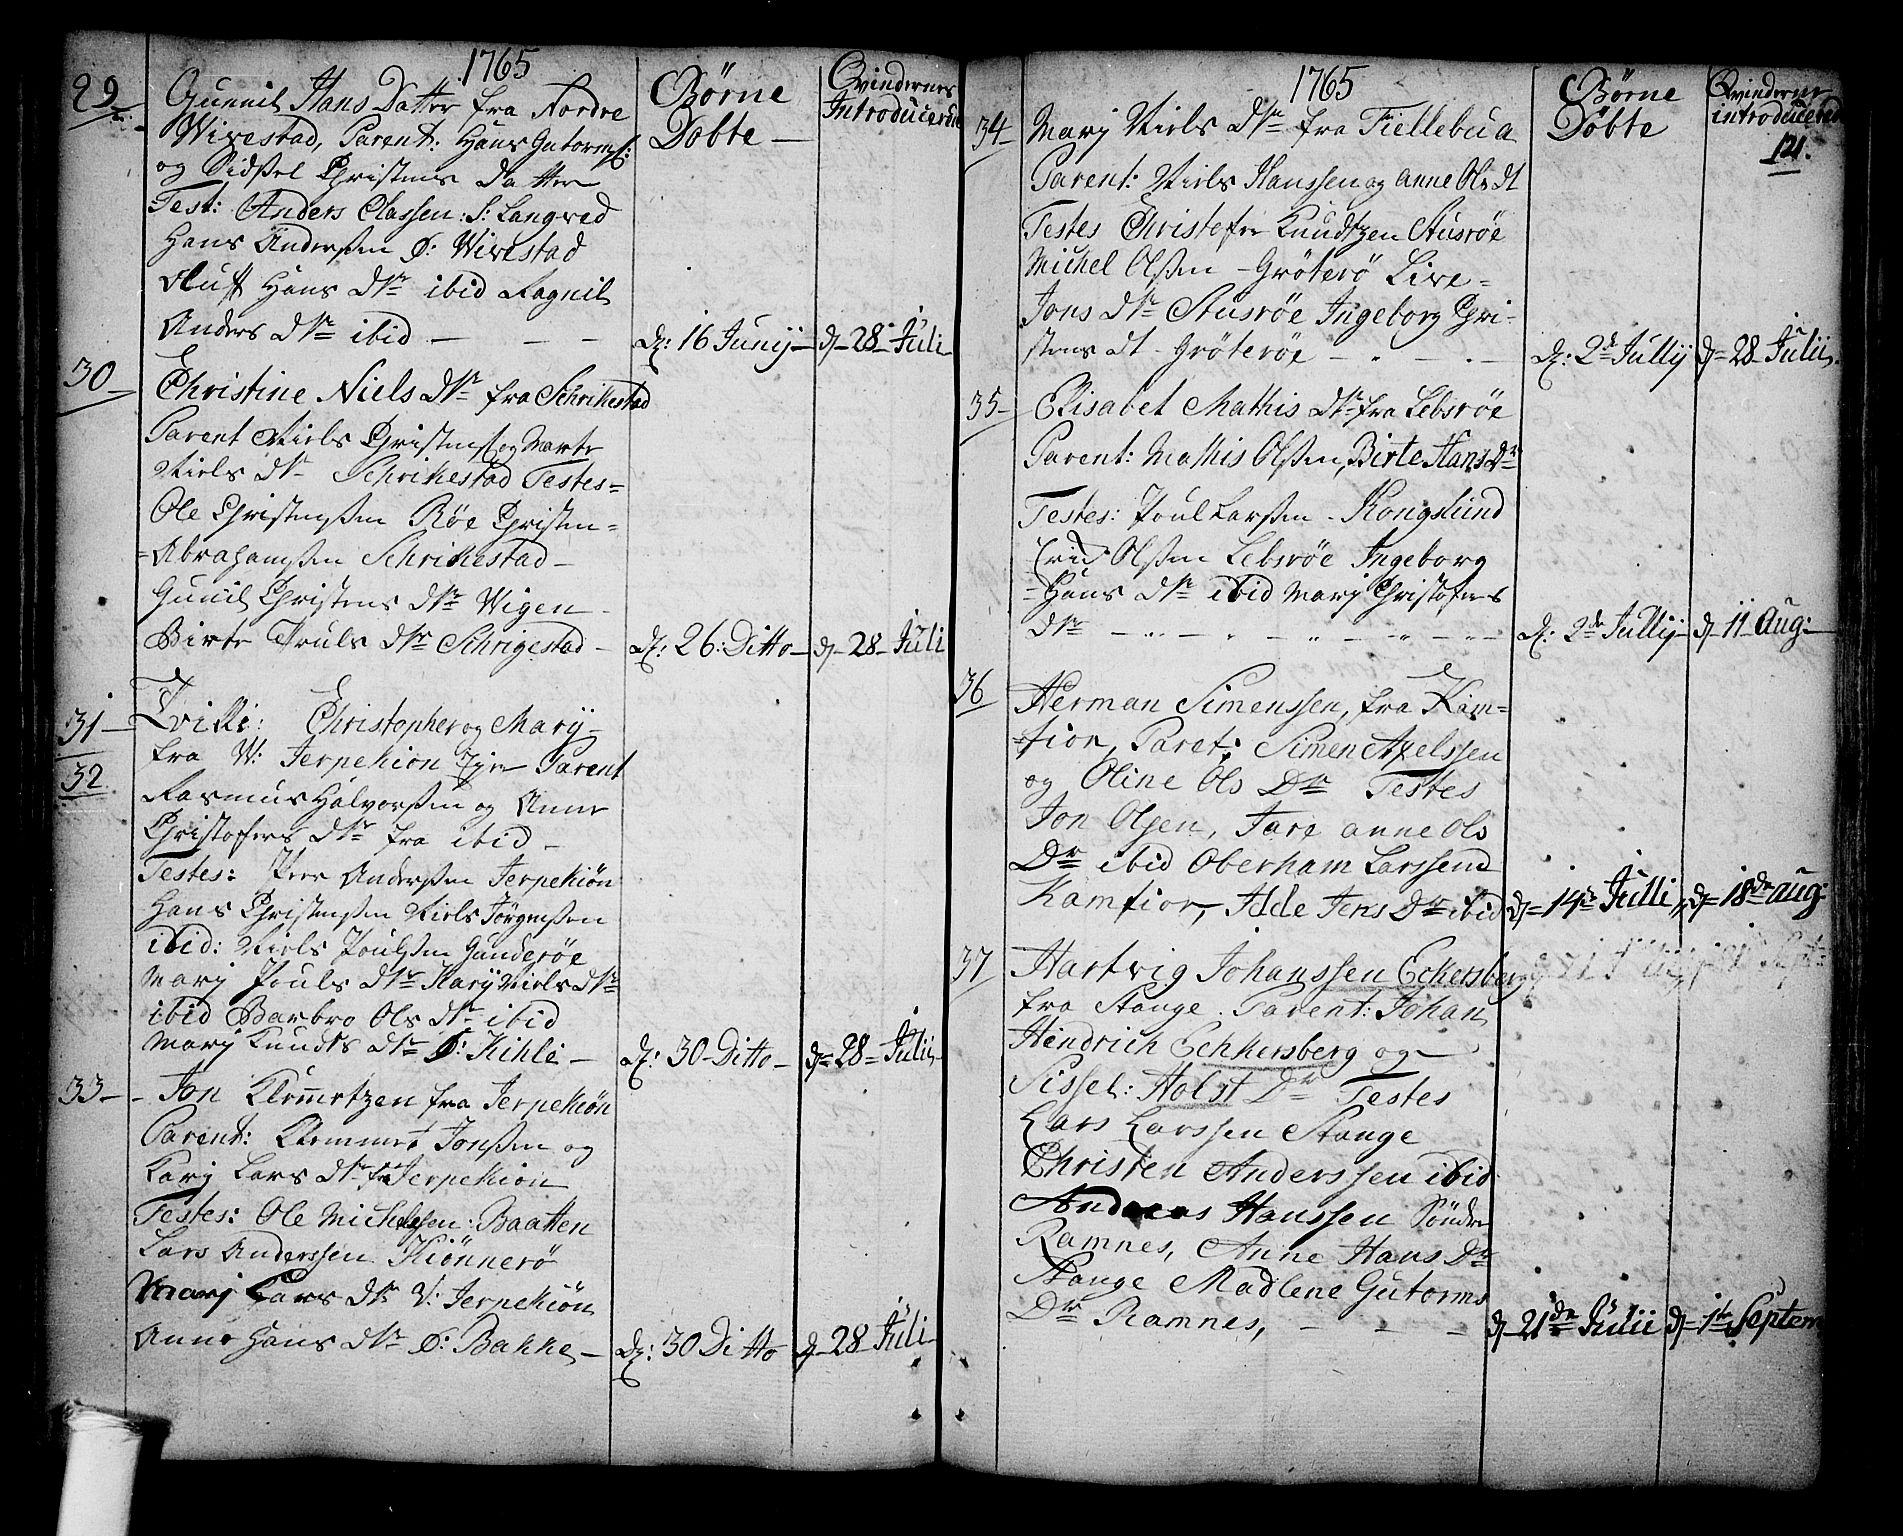 1765
Børne Døbte —
Qvindernes Introducerede
29
Gunnil Hans Datter fra Nordre
Wivestad, Parent: Hans Gutorms:
og Sidsel Christens Datter
Test: Anders Classen: S: Langved
Hans Anderssen Ø: Wivestad
Hans Dtr ibid Ragnil
Anders Dtr ibid — — — d: 16 Junij — d— 28 Juli
30
Christine Niels Dtr fra Schrikestad
Parent Niels Christens: og Marte
Niels Dtr Schrikestad Testes=
Ole Christenssen Røe Christen=
=Abrahamssen Schrikestad —
Gunil Christens Dtr Wigen —
Birte Truls Dtr Schrigestad — d: 26: Ditto — d— 28— Juli
31
32
Tvilli: Christopher og Marj
fra W: Jerpekiøn Parent
Rasmus Halvorssen og Anne
Christofers Dtr fra ibid —
Testes: Peer Anderssen Jerpekiøn
Hans Christenssen Niels Jørgenssen
ibid: Niels Poulssen Gunderøe
Marj Pouls Dtr Karj Niels Dtr
ibid Barbro Ols Dtr ibid
Marj Knudts Dtr Ø: Kihle — d: 30 Ditto — d= 28= Julii
33 — Jon Klemmetzen fra Jerpekiøn
Parent: Klemmet Jonssen og
Karj Lars Dtr fra Jerpekiøn
Testes: Ole Michelssen: Baatten
Lars Anderssen Kiønnerø
Marj Lars Dtr V: Jerpekiøn
Anne Hans Dtr Ø: Bakke — d: 30 Ditto d— 28 Juli
1765
Børne Døbte
Qvindernes introducered
121.
34 Marj Niels Dtr fra Fiellebua
Parent: Niels Hanssen og Anne Ols dt
Testes Christofer Knudtzen Ausrøe
Michel Olssen — Grøterø Live=
Jons Dtr Ausrøe Ingeborg Chri-
stens Dt — Grøterøe — d: 2d Jullij d= 28 Julii
35 — Elisabet Mathis Dtr fra Lebsrøe
Parent: Mathis Olssen, Birte Hans Dr
Testes: Poul Larssen — Kongslund
Olssen Lebsrøe Ingeborg
=Hans Dtr ibid Marj Christofers
Dtr — d: 2de Jullij — d— 11— Aug: —
36 Herman Simenssen, fra Kam=
=fior, Paret: Simen Axelssen
og Oline Ols Dtr Testes
Jon Olsen, Fare Anne Ols
Dr ibid Oberham Larssen
Kamfior, Idde Jens Dr ibid d= 14de Julli, d= 18de aug:
37 Hartvig Johanssen Eckersberg
fra Stange. Parent: Johan
Hendrich Echkersberg og
Sissel: Holst Dr Testes
Lars Larssen Stange
Christen Anderssen ibid.
Andreas Hanssen Søndre
Ramnes, Anne Hans Dr
Stange Madlene Gutorms
Dr Ramnes, — — — d— 21de Julii d= 1te Septem